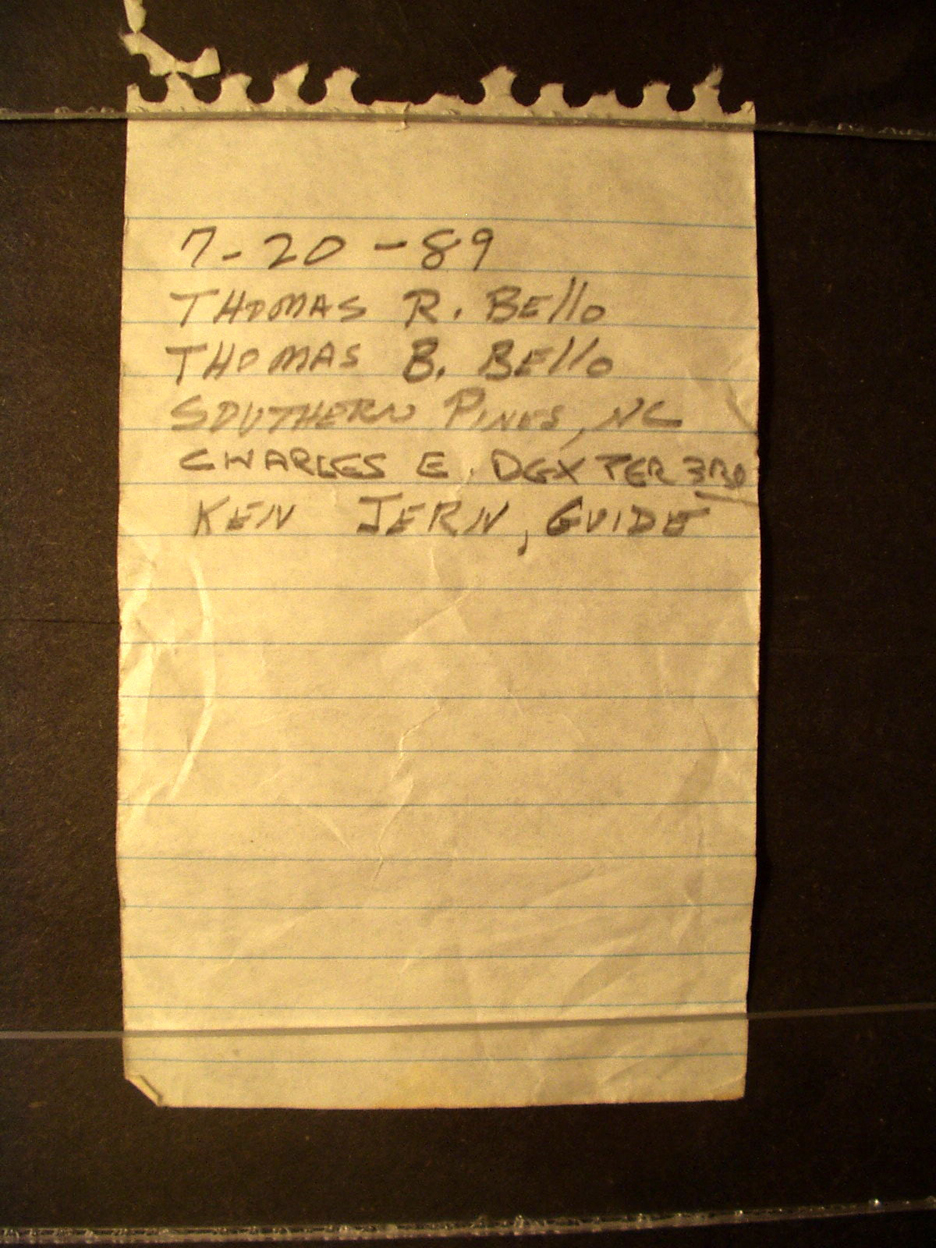 7-20-89
THOMAS R. BEllo
THOMAS B. BEllo
SOUTHERN PINES, NC
CHARLES E. DEXTER 3RD
KEN JERN, GUIDE